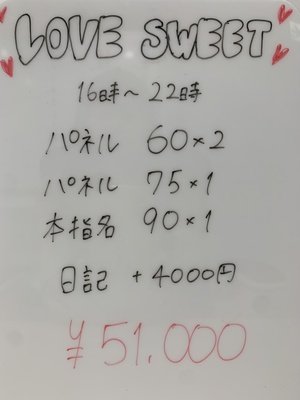 LOVE SWEET
16時〜22時
パネル 60×2
パネル 75×1
本指名 90×1
日記 +4000円
¥51.000